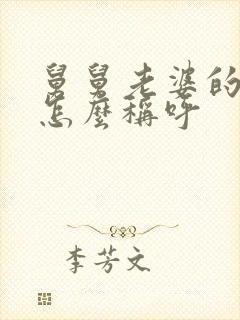 舅舅老婆的
怎麼稱呼
李芳文